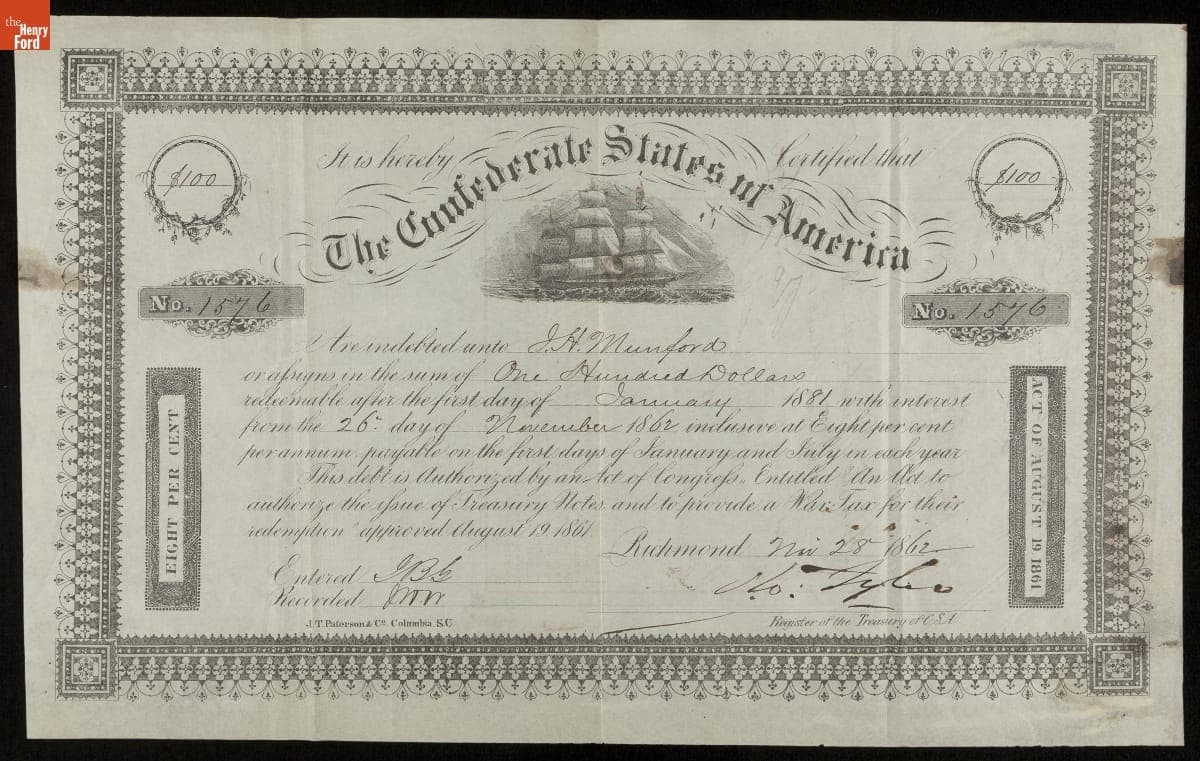 the
Henry
Ford
It is hereby Certified that
The Confederate States of America
$100
$100
No. 1576
No. 1576
Are indebted unto J.H. Munford
or assigns in the sum of One Hundred Dollars
redeemable after the first day of January 1881 with interest
from the 26 day of November 1862 inclusive at Eight per cent
per annum payable on the first days of January and July in each year
This debt is Authorized by an Act of Congress, Entitled "An Act to
authorize the issue of Treasury Notes and to provide a War Tax for their
redemption" approved August 19. 1861.
EIGHT PER CENT
ACT OF AUGUST 19 1861
Richmond Nov 28 1862
Entered
Recorded
Ro. Tyler
J.T. Paterson & Co. Columbia, S.C.
Register of the Treasury of C.S.A.